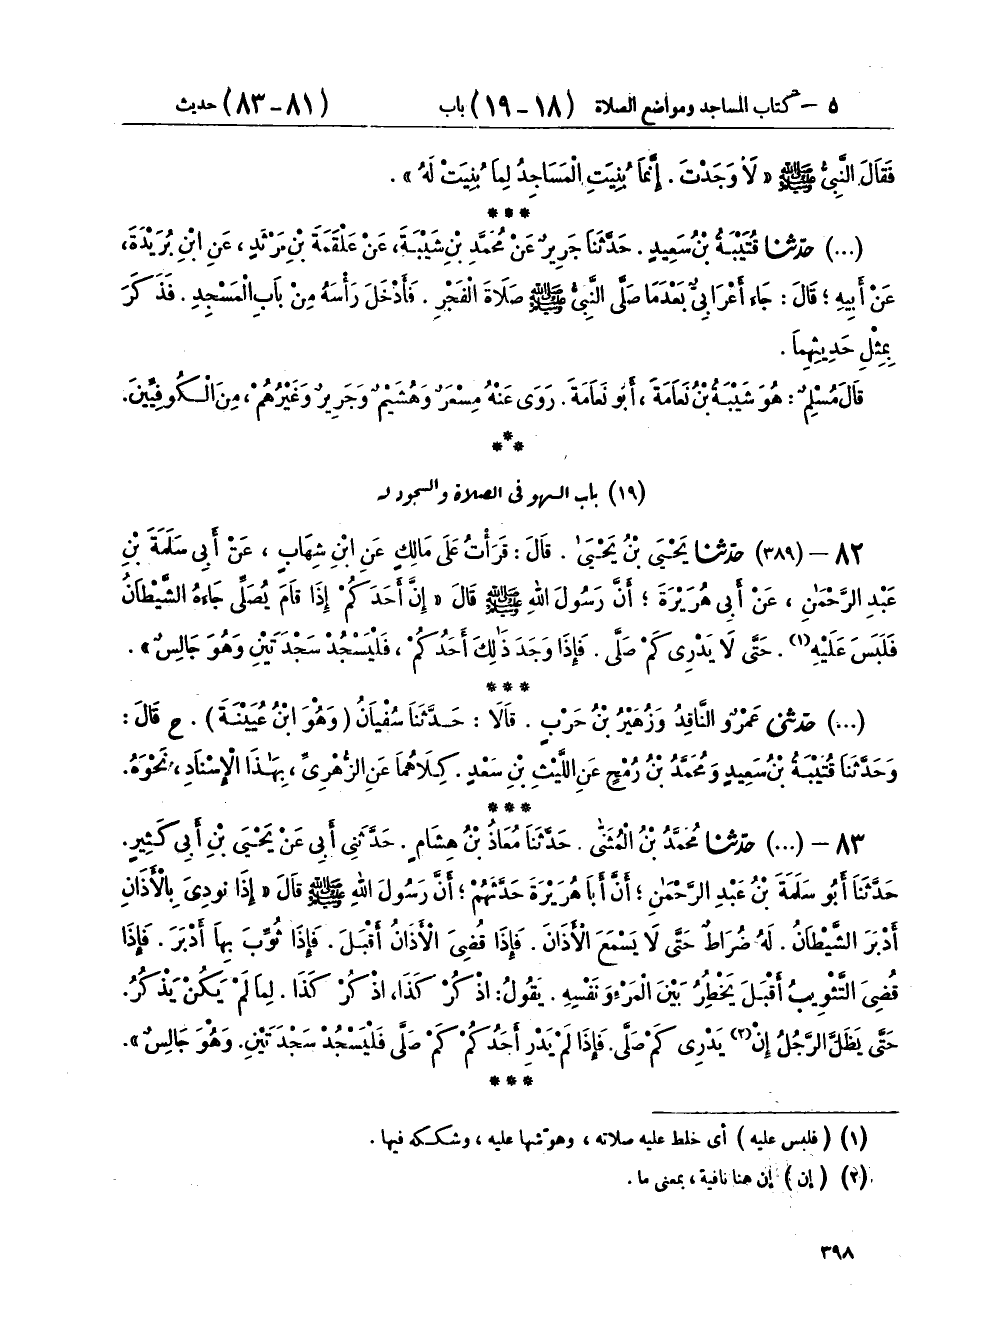 ٥ – كتاب المساجد ومواضع الصلاة (١٨ – ١٩) باب (٨١ – ٨٣) حديث
فَقَالَ النَّبِيُّ ﷺ « لَا وَجَدْتَ . إِنَّمَا بُنِيَتِ الْمَسَاجِدُ لِمَا بُنِيَتْ لَهُ » .
***
(...) حدّثنا قُتَيْبَةُ بْنُ سَعِيدٍ . حَدَّثَنَا جَرِيرٌ عَنْ مُحَمَّدِ بْنِ شَيْبَةَ، عَنْ عَلْقَمَةَ بْنِ مَرْثَدٍ ، عَنِ ابْنِ بُرَيْدَةَ،
عَنْ أَبِيهِ ؛ قَالَ : جَاءَ أَعْرَابِيٌّ بَعْدَمَا صَلَّى النَّبِيُّ ﷺ صَلَاةَ الْفَجْرِ . فَأَدْخَلَ رَأْسَهُ مِنْ بَابِ الْمَسْجِدِ . فَذَكَرَ
بِمِثْلِ حَدِيثِهِمَا .
قَالَ مُسْلِمٌ : هُوَ شَيْبَةُ بْنُ نَعَامَةَ ، أَبُو نَعَامَةَ . رَوَى عَنْهُ مِسْعَرٌ وَهُشَيْمٌ وَجَرِيرٌ وَغَيْرُهُمْ ، مِنَ الْكُوفِيِّينَ.
***
(١٩) باب السهو فى الصلاة والسجود له
٨٢ – (٣٨٩) حدّثنا يَحْيَى بْنُ يَحْيَىٰ . قَالَ : قَرَأْتُ عَلَى مَالِكٍ عَنِ ابْنِ شِهَابٍ ، عَنْ أَبِى سَلَمَةَ بْنِ
عَبْدِ الرَّحْمَٰنِ ، عَنْ أَبِى هُرَيْرَةَ ؛ أَنَّ رَسُولَ اللهِ ﷺ قَالَ « إِنَّ أَحَدَكُمْ إِذَا قَامَ يُصَلِّى جَاءَهُ الشَّيْطَانُ
فَلَبَسَ عَلَيْهِ(١) . حَتَّى لَا يَدْرِى كَمْ صَلَّى . فَإِذَا وَجَدَ ذَٰلِكَ أَحَدُكُمْ ، فَلْيَسْجُدْ سَجْدَتَيْنِ وَهُوَ جَالِسٌ » .
***
(...) حدّثنى عَمْرٌو النَّاقِدُ وَزُهَيْرُ بْنُ حَرْبٍ . قَالَا : حَدَّثَنَا سُفْيَانُ ( وَهُوَ ابْنُ عُيَيْنَةَ ) . ح قَالَ :
وَحَدَّثَنَا قُتَيْبَةُ بْنُ سَعِيدٍ وَمُحَمَّدُ بْنُ رُمْحٍ عَنِ اللَّيْثِ بْنِ سَعْدٍ . كِلَاهُمَا عَنِ الزُّهْرِىِّ ، بِهَٰذَا الْإِسْنَادِ ، نَحْوَهُ.
***
٨٣ – (...) حدّثنا مُحَمَّدُ بْنُ الْمُثَنَّى . حَدَّثَنَا مُعَاذُ بْنُ هِشَامٍ . حَدَّثَنِى أَبِى عَنْ يَحْيَى بْنِ أَبِى كَثِيرٍ.
حَدَّثَنَا أَبُو سَلَمَةَ بْنُ عَبْدِ الرَّحْمَٰنِ ؛ أَنَّ أَبَا هُرَيْرَةَ حَدَّثَهُمْ ؛ أَنَّ رَسُولَ اللهِ ﷺ قَالَ « إِذَا نُودِىَ بِالْأَذَانِ
أَدْبَرَ الشَّيْطَانُ . لَهُ ضُرَاطٌ حَتَّى لَا يَسْمَعَ الْأَذَانَ . فَإِذَا قُضِىَ الْأَذَانُ أَقْبَلَ . فَإِذَا ثُوِّبَ بِهَا أَدْبَرَ . فَإِذَا
قُضِىَ التَّثْوِيبُ أَقْبَلَ يَخْطُرُ بَيْنَ الْمَرْءِ وَنَفْسِهِ . يَقُولُ: اذْكُرْ كَذَا، اذْكُرْ كَذَا . لِمَا لَمْ يَكُنْ يَذْكُرُ.
حَتَّى يَظَلَّ الرَّجُلُ إِنْ(٢) يَدْرِى كَمْ صَلَّى. فَإِذَا لَمْ يَدْرِ أَحَدُكُمْ كَمْ صَلَّى فَلْيَسْجُدْ سَجْدَتَيْنِ. وَهُوَ جَالِسٌ ».
***
(١) ( فلبس عليه ) أى خلط عليه صلاته ، وهوّشها عليه ، وشككه فيها .
(٢) ( إن ) إن هنا نافية ، بمعنى ما .
٣٩٨